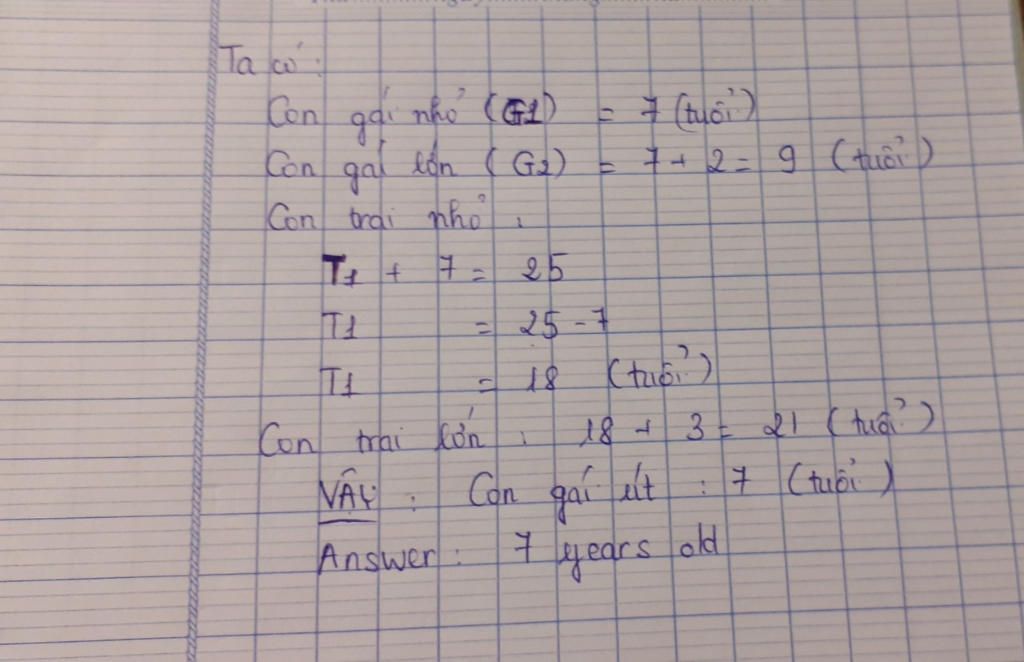 Ta có:
Con gái nhỏ (G1) = 7 (tuổi)
Con gái lớn (G2) = 7 + 2 = 9 (tuổi)
Con trai nhỏ :
T1 + 7 = 25
T1 = 25 - 7
T1 = 18 (tuổi)
Con trai lớn : 18 + 3 = 21 (tuổi)
VẬY : Con gái út : 7 (tuổi)
Answer : 7 years old